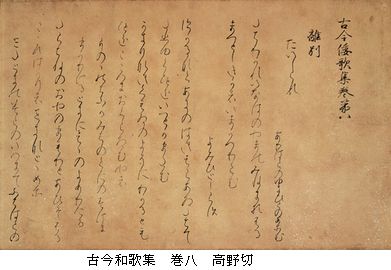 古今倭歌集巻第八
離別
たいしらす
ありはらのゆきひらのあそむ
たちわかれいなはのやまのみねにおふる
まつとしきかはいまかへりこむ
よみひとしらす
すかるなくあきのはきはらあさたちて
たひゆくひとをいつとかまたむ
かきりなきくもゐのよそにわかるとも
ひとをこゝろにおくらさむやは
をのゝちふるかみちのくのすけに
まかりけるときにはゝのよめる
たらちねのおやのまもりとあひそふる
こゝろはかりはせきなとゝめそ
古今和歌集　巻八　高野切